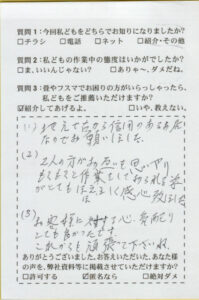 質問1:今回私どもをどちらでお知りになりましたか?
□チラシ □電話 □ネット □紹介・その他
質問2:私どもの作業中の態度はいかがでしたか?
□ま、いいんじゃない? □ありゃ〜、ダメだね。
質問3:畳やフスマでお困りの方がいらっしゃったら、
私どもをご推薦いただけますか?
☑紹介してあげるよ。 □いや、教えない。
(1)
信用のある店
なのでお願いしました
(2)
2人の方がお互いを思いやり
作業をして
感心致しました
(3)
お客様に対する心、
とても良かったです
これからも頑張って下さいね
ありがとうございました。お答えいただいた、あなた様
の声を、弊社資料等に掲載させていただけますか?
□許可する ☑匿名なら □絶対ダメ